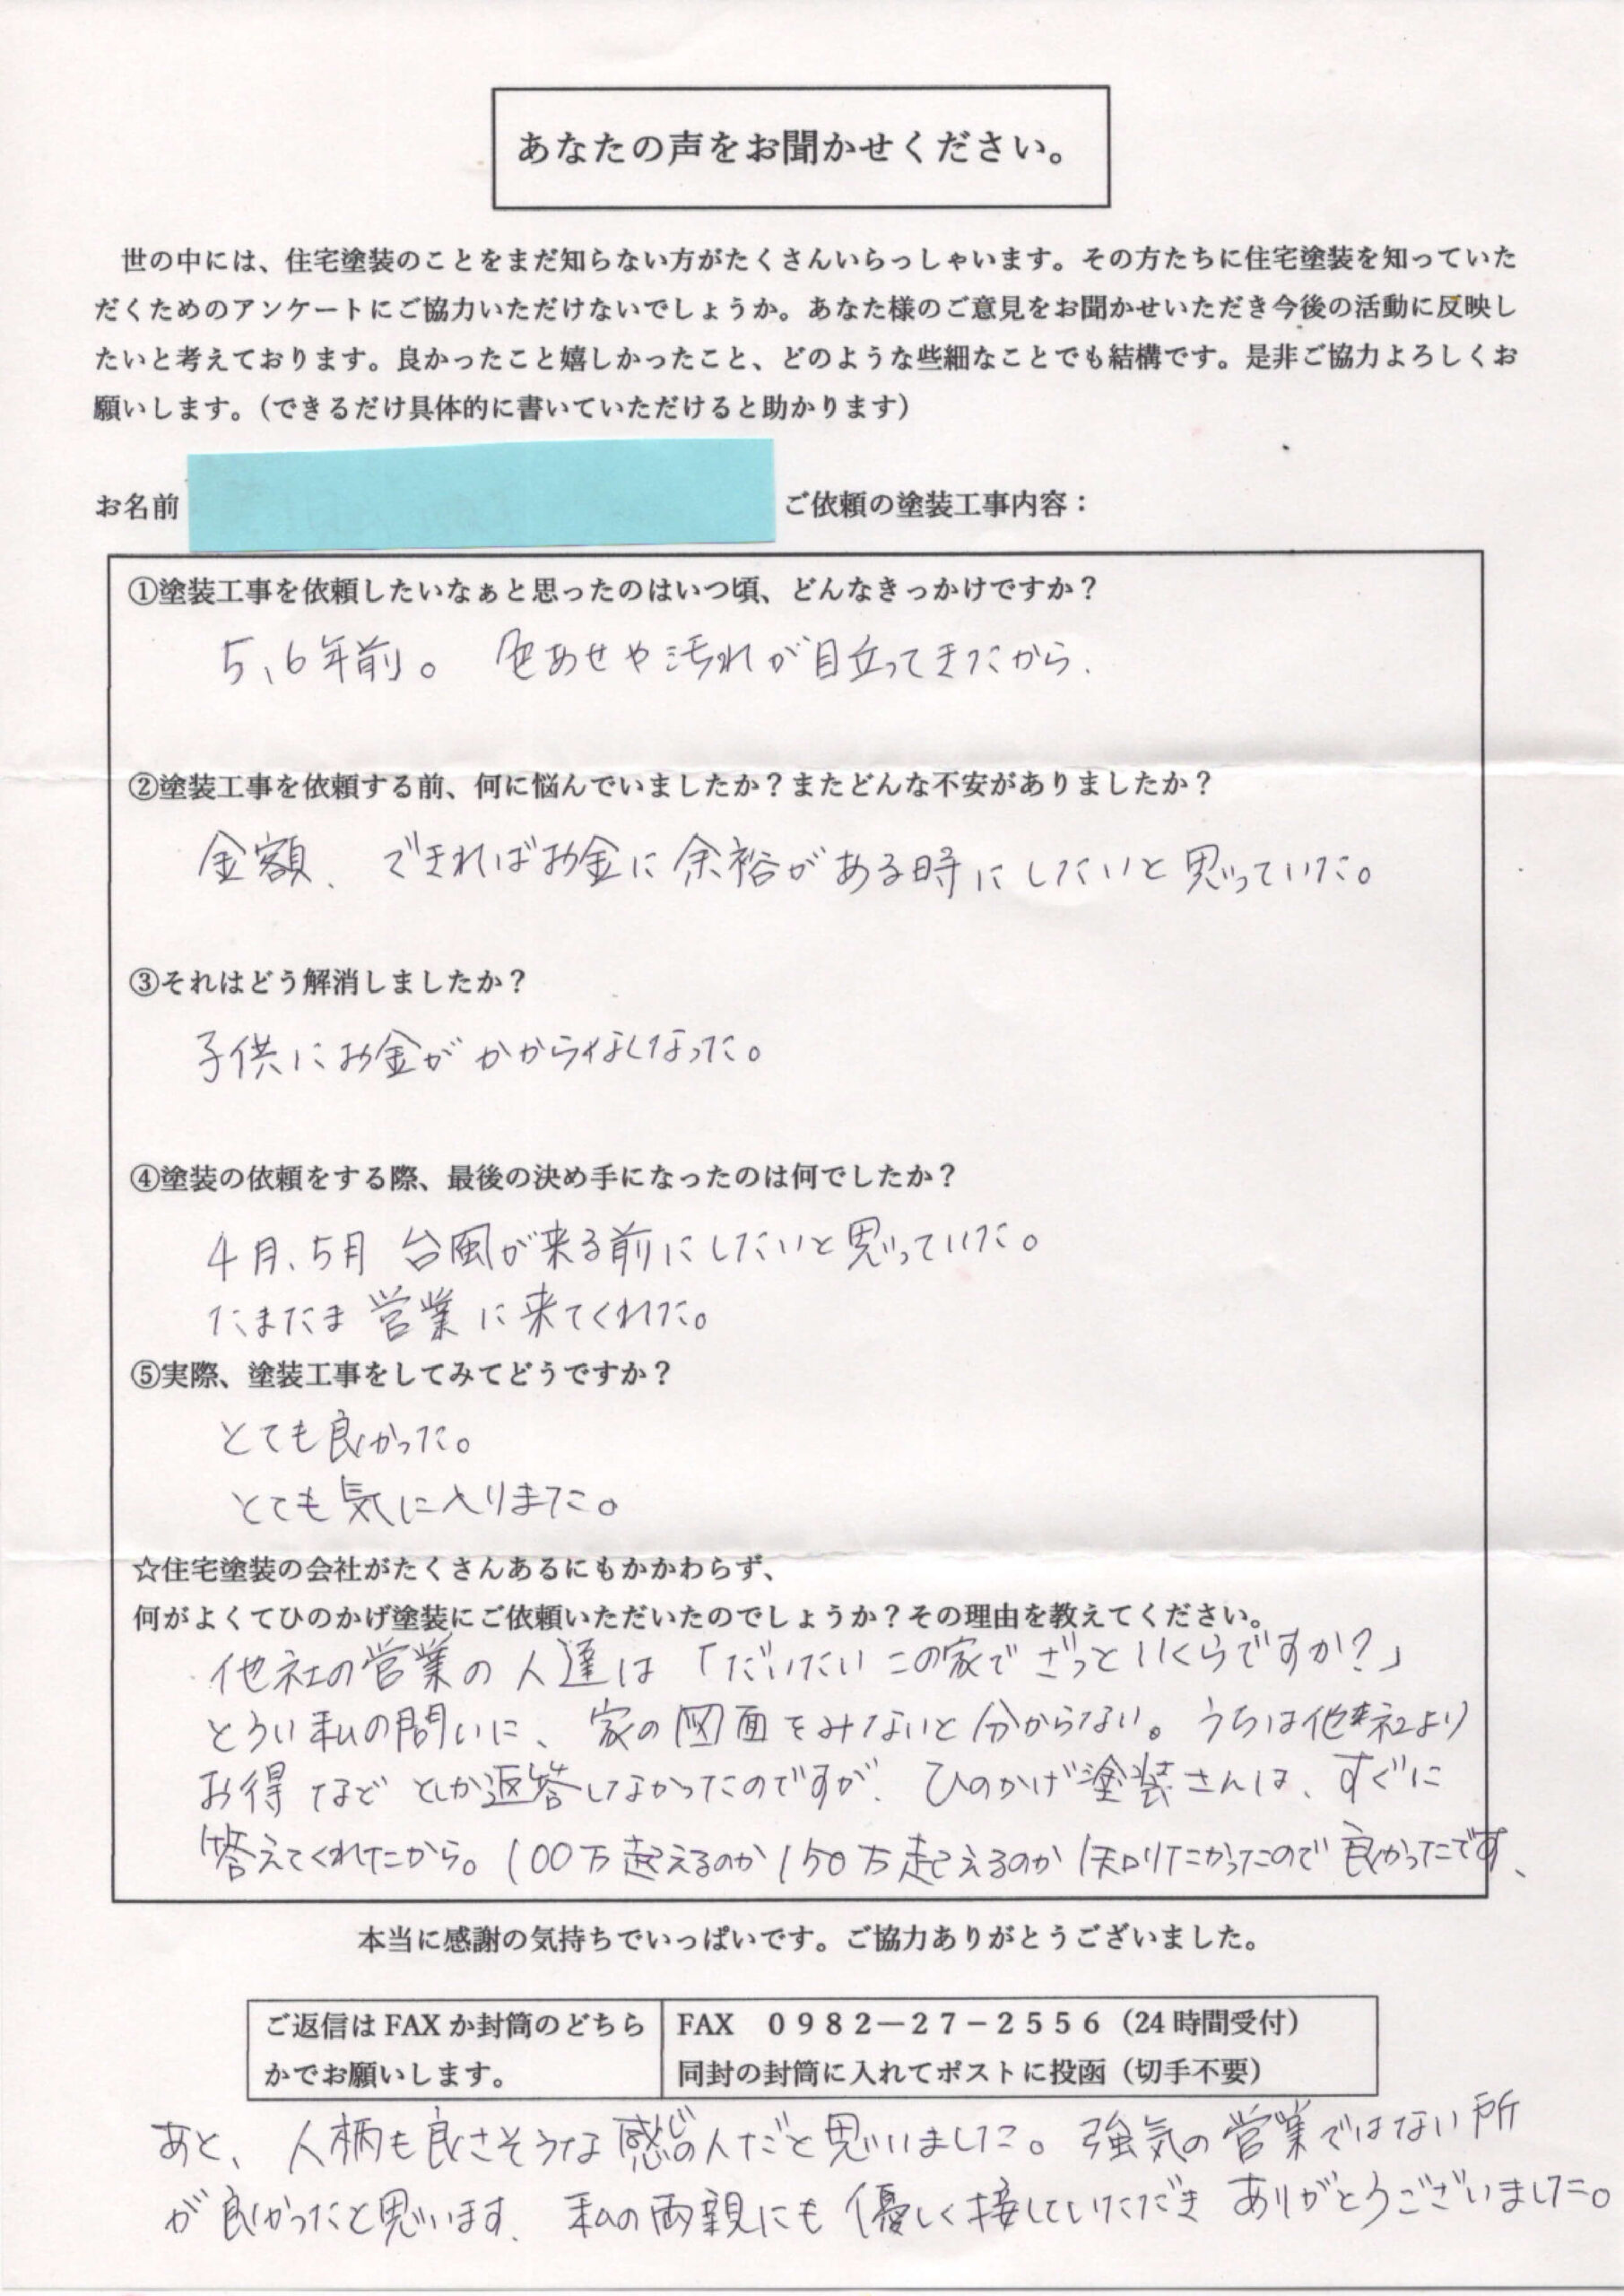 あなたの声をお聞かせください。
世の中には、住宅塗装のことをまだ知らない方がたくさんいらっしゃいます。その方たちに住宅塗装を知っていた
だくためのアンケートにご協力いただけないでしょうか。あなた様のご意見をお聞かせいただき今後の活動に反映し
たいと考えております。良かったこと嬉しかったこと、どのような些細なことでも結構です。是非ご協力よろしくお
願いします。（できるだけ具体的に書いていただけると助かります）
お名前 ご依頼の塗装工事内容：
①塗装工事を依頼したいなぁと思ったのはいつ頃、どんなきっかけですか？
5、6年前。 色あせや汚れが目立ってきたから.
②塗装工事を依頼する前、何に悩んでいましたか？またどんな不安がありましたか？
金額、できればお金に余裕がある時にしたいと思っていた。
③それはどう解消しましたか？
子供にお金がかからなくなった。
④塗装の依頼をする際、最後の決め手になったのは何でしたか？
4月、5月 台風が来る前にしたいと思っていた。
たまたま営業に来てくれた。
⑤実際、塗装工事をしてみてどうですか？
とても良かった。
とても気に入りました。
☆住宅塗装の会社がたくさんあるにもかかわらず、
何がよくてひのかげ塗装にご依頼いただいたのでしょうか？その理由を教えてください。
他社の営業の人達は「だいたいこの家でざっといくらですか？」
とうい私の問いに、家の図面をみないと分からない。うちは他社より
お得などとしか返答しなかったのですが、ひのかげ塗装さんは、すぐに
答えてくれたから。100万超えるのか150万超えるのか知りたかったので良かったです、
本当に感謝の気持ちでいっぱいです。ご協力ありがとうございました。
ご返信はFAXか封筒のどちら FAX 0982－27－2556（24時間受付）
かでお願いします。 同封の封筒に入れてポストに投函（切手不要）
あと、人柄も良さそうな感じの人だと思いました。強気の営業ではない所
が良かったと思います、私の両親にも優しく接していただきありがとうございました。